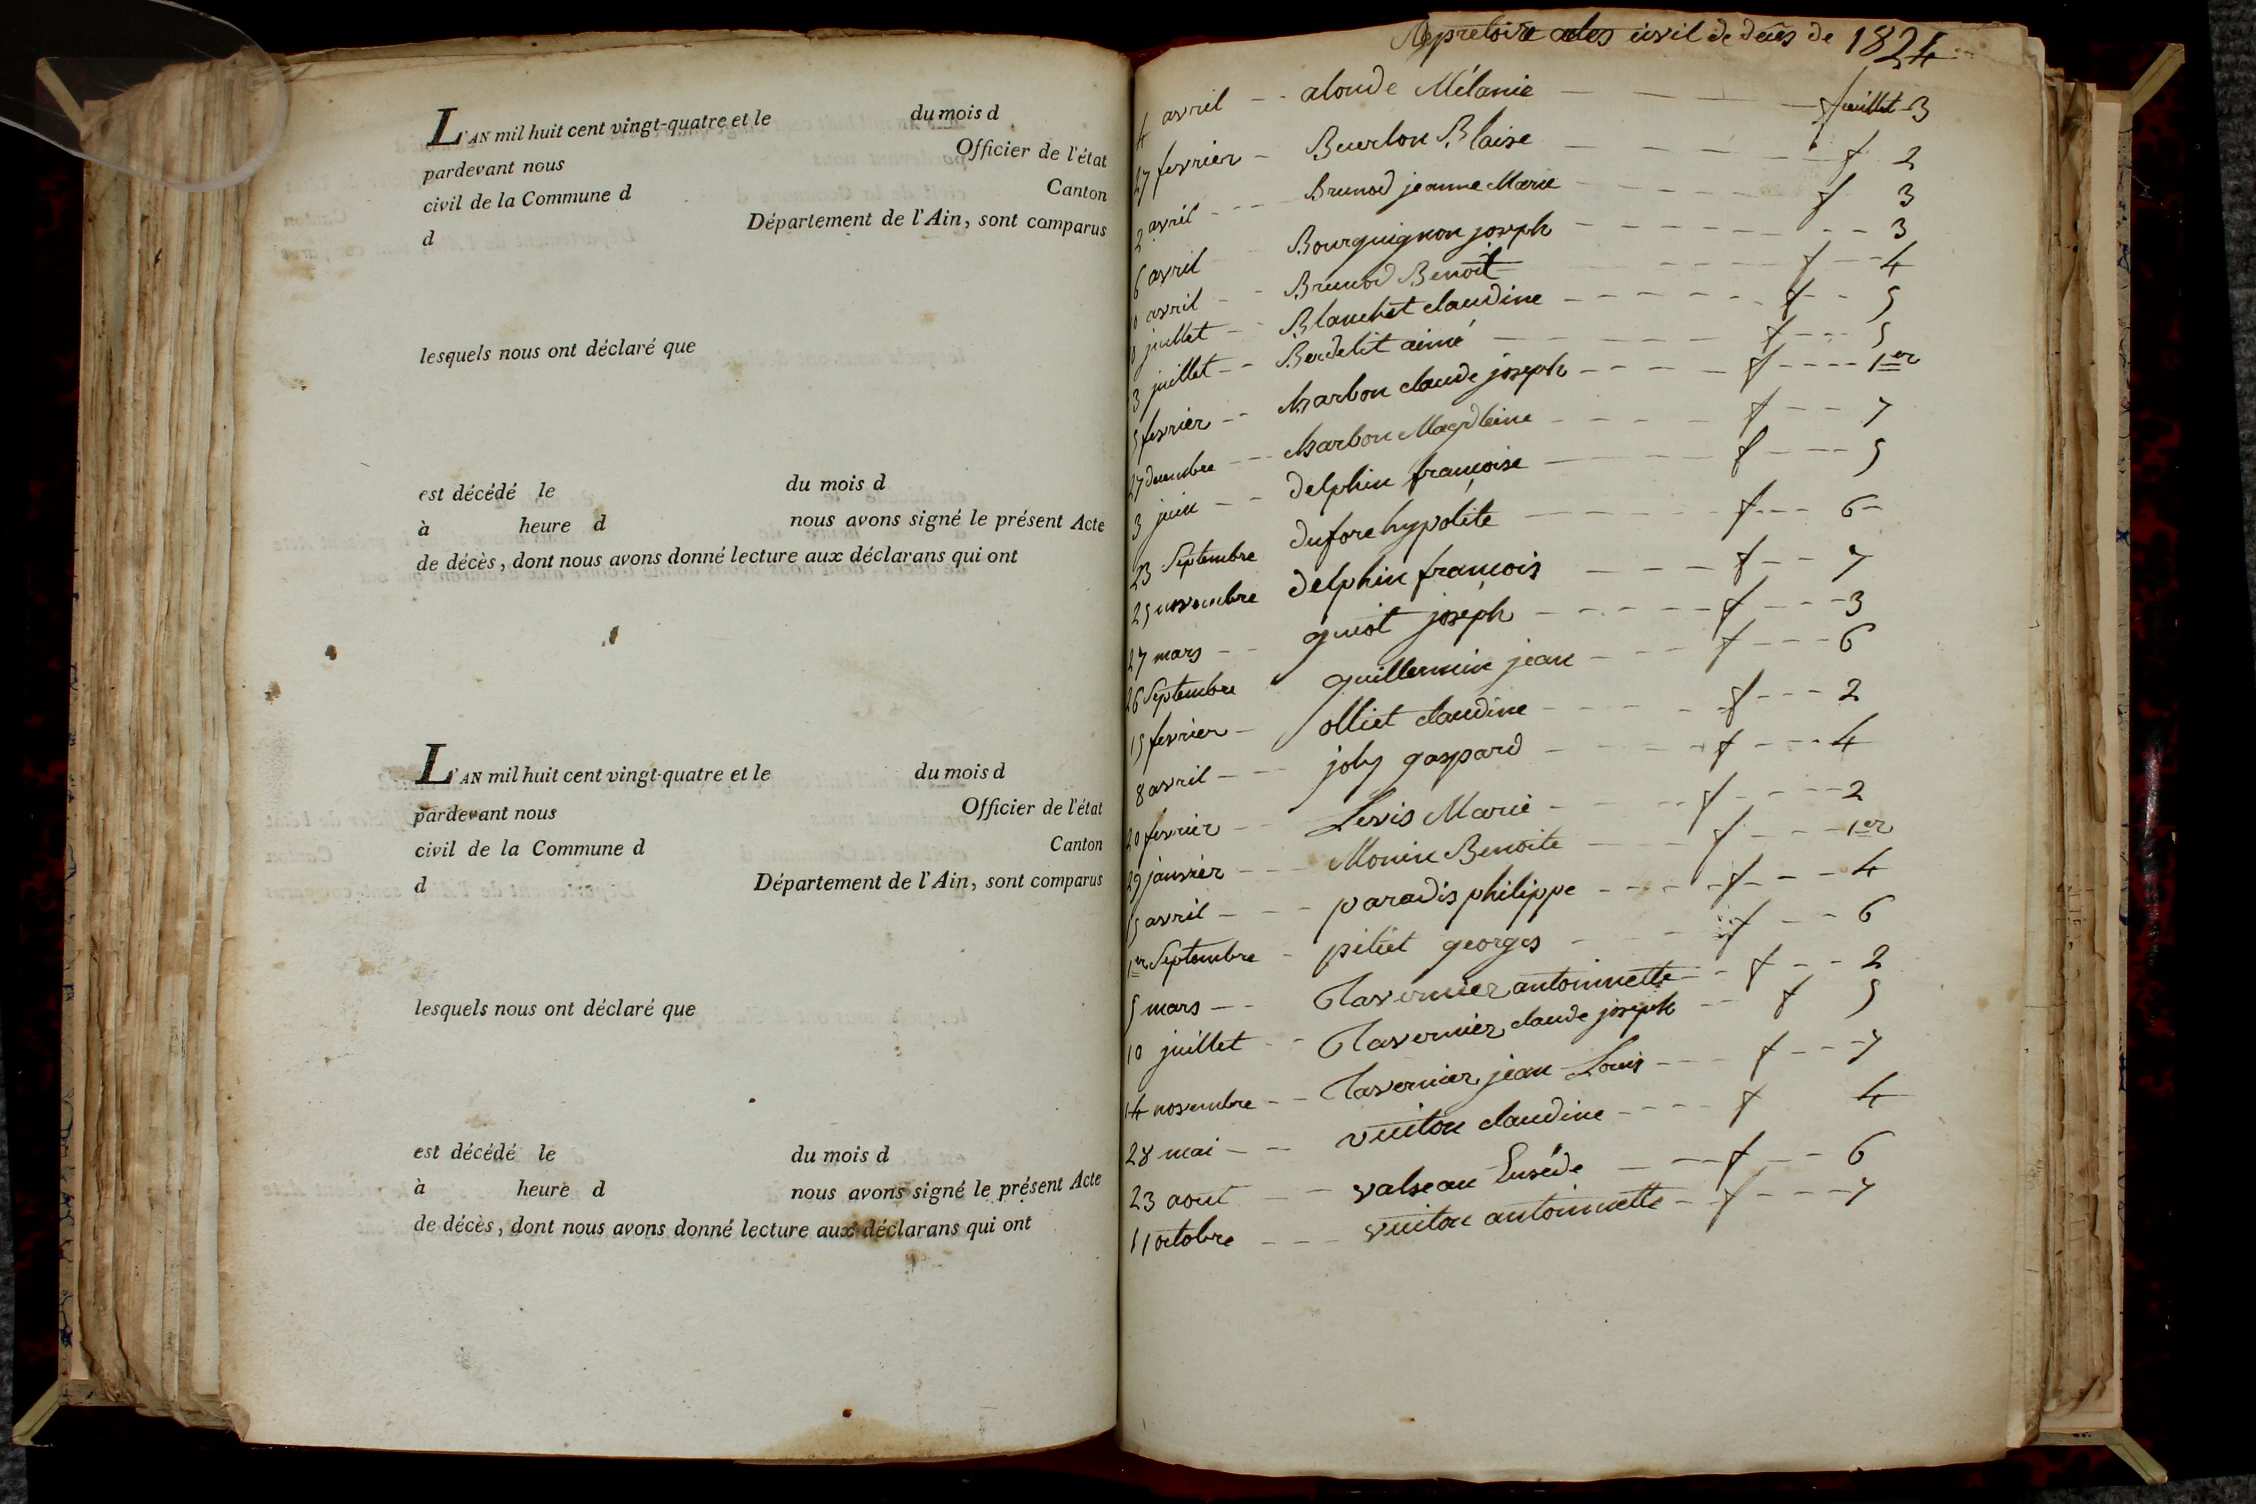 L'AN mil huit cent vingt-quatre et le du mois d
pardevant nous Officier de l'état
civil de la Commune d Canton
d Département de l'Ain, sont comparus
lesquels nous ont déclaré que
est décédé le du mois d
à heure d nous avons signé le présent Acte
de décès, dont nous avons donné lecture aux déclarans qui ont
L'AN mil huit cent vingt-quatre et le du mois d
pardevant nous Officier de l'état
civil de la Commune d Canton
d Département de l'Ain, sont comparus
lesquels nous ont déclaré que
est décédé le du mois d
à heure d nous avons signé le présent Acte
de décès, dont nous avons donné lecture aux déclarans qui ont
civil de décès de 1824
4 avril -- alonde Mélanie feuillet 3
27 fevrier - Blaise f 2
2 avril --- Brunod jeanne Marie f 3
6 avril Bourguignon joseph 3
avril -- Brunod Benoit f 4
juillet -- Blanchet claudine f 5
3 juillet -- Berdelit aimé f 5
5 fevrier -- charbon claude joseph f 1er
27 decembre -- charbon Magdleine f 7
3 juin -- delphin françoise f 5
23 Septembre dufore hypolite f 6
25 novembre delphin françois f 7
27 mars -- guiot joseph f 3
26 Septembre guillermin jean f 6
15 fevrier - olliet claudine f 2
8 avril --- joly gaspard f 4
20 fevrier -- Levis Marie f 2
29 janvier --- Monin Benoite f 1er
15 avril --- paradis philippe f 4
1er Septembre - pitiet georges f 6
5 mars -- Tavernier antoinnette f 2
10 juillet -- Tavernier claude joseph f 5
14 novembre -- Tavernier jean Louis f 7
28 mai -- vuiton claudine f 4
23 aout -- valseau Eusébe f 6
11 octobre --- vuiton antoinnette f 7